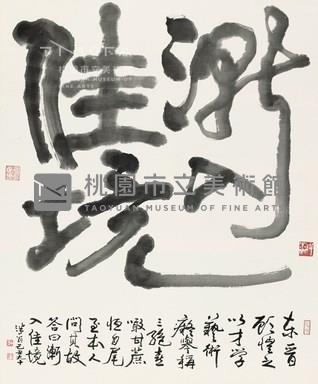 漸入
佳境
東晉
顧愷之
以才學
藝術
癡譽稱
三絕
噉甘蔗
恒自尾
至本人
問其故
答曰漸
入佳境
桃園市立美術館
TAOYUAN MUSEUM OF FINE ARTS
桃園市立美術館
TAOYUAN MUSEUM OF FINE ARTS